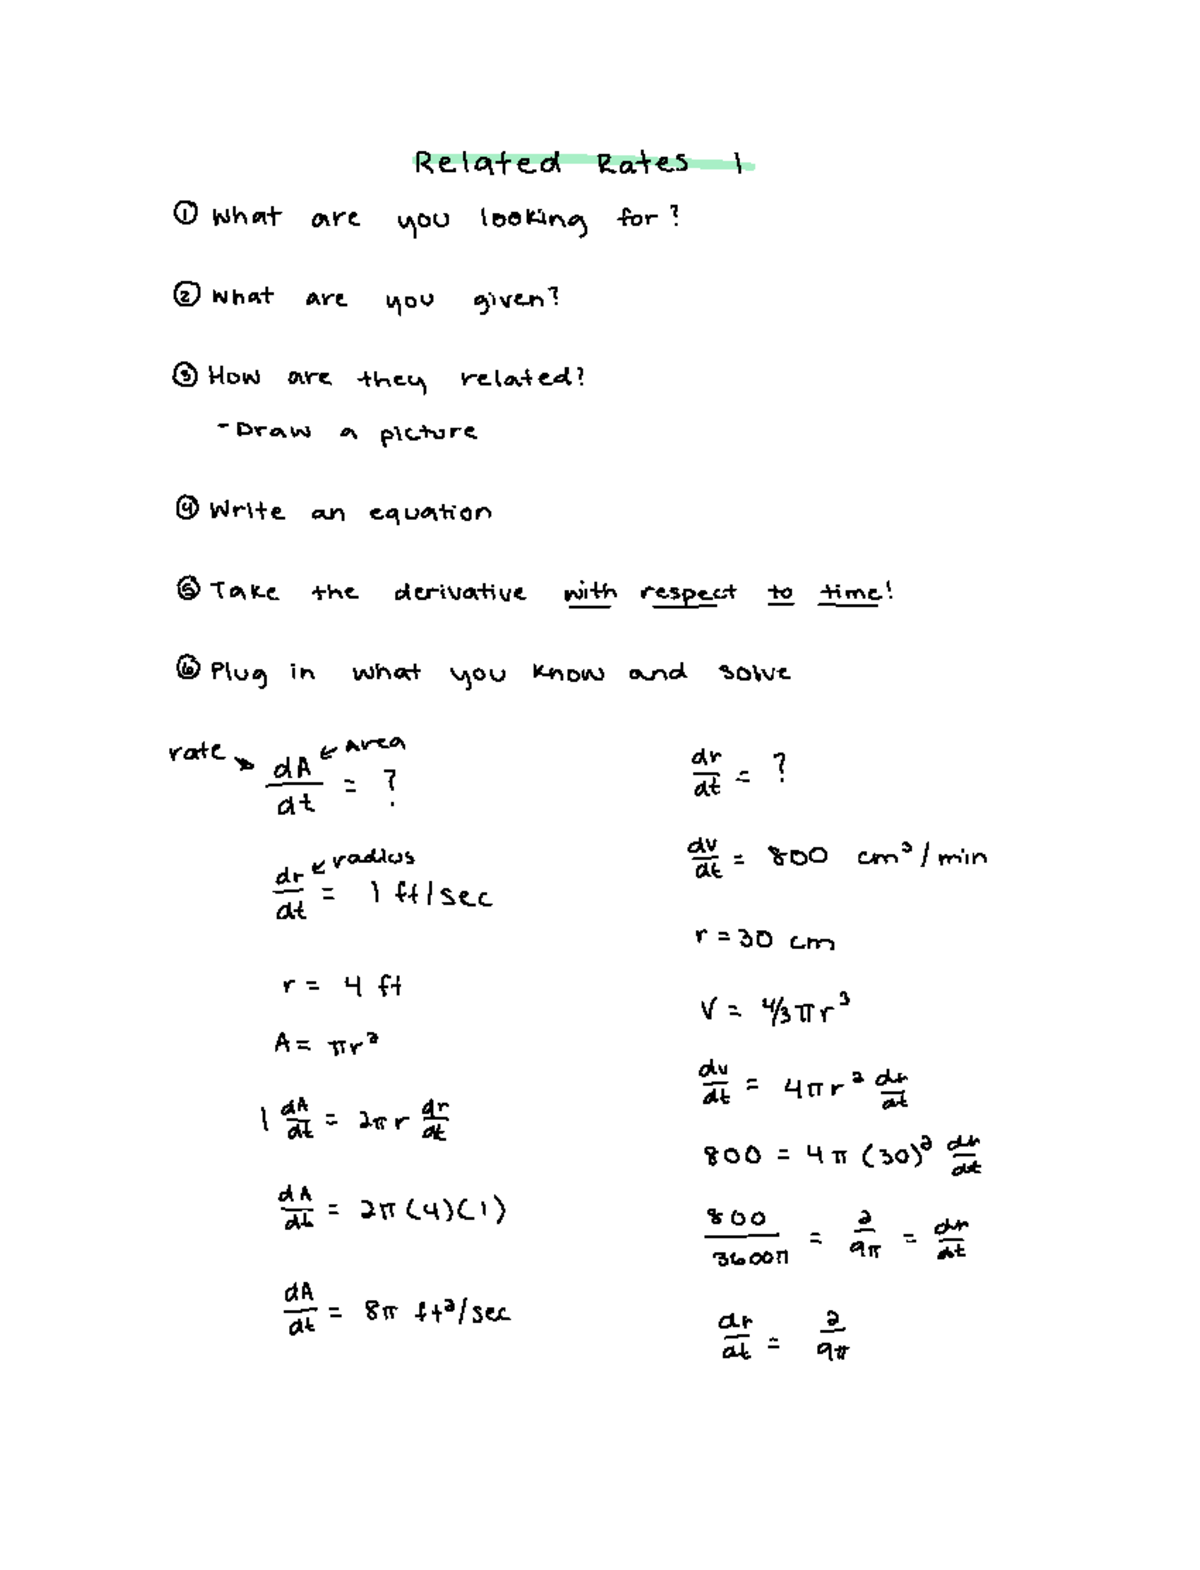 Related Rates 1
① What are you looking for?
② What are you given?
③ How are they related?
- Draw a picture
④ Write an equation
⑤ Take the derivative with respect to time!
⑥ Plug in what you know and solve
rate → dA/dt = ? ← Area
dr/dt = 1 ft/sec ← radius
r = 4 ft
A = πr²
1 dA/dt = 2πr dr/dt
dA/dt = 2π(4)(1)
dA/dt = 8π ft²/sec
dr/dt = ?
dv/dt = 800 cm³/min
r = 30 cm
V = 4/3πr³
dv/dt = 4πr² dr/dt
800 = 4π(30)² dr/dt
800/3600π = 2/9π = dr/dt
dr/dt = 2/9π